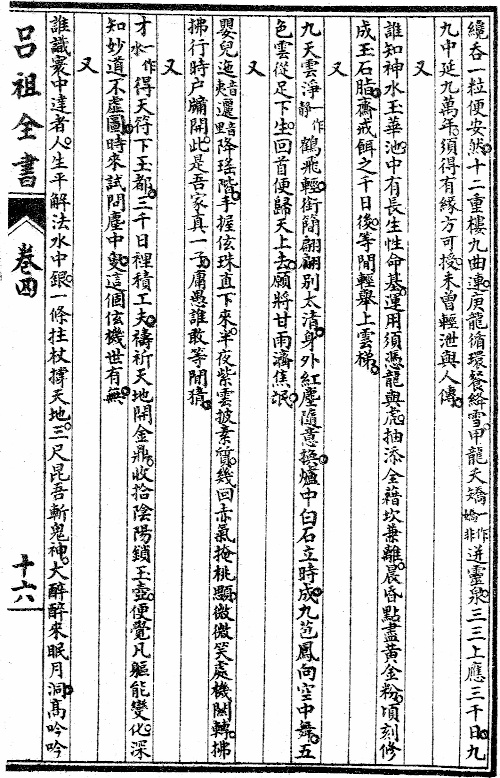 纔吞一粒便安然十二重樓九曲連庚龍循環餐絡雪甲龍夭矯一作嬌非迸靈泉三三上應三千日九
九中延九萬年須得有緣方可授未曾輕泄與人傳
又
誰知神水玉華池中有長生性命基運用須憑龍與虎抽添全藉坎兼離晨昏點盡黃金粉頃刻修
成玉石脂齋戒餌之千日後等閒輕舉上雲梯
又
九天雲淨一作靜鶴飛輕銜簡翩翩別太清身外紅塵隨意換爐中白石立時成九苞鳳向空中舞五
色雲從足下生回首便歸天上去願將甘雨濟焦氓
又
嬰兒迤音東邐音里降瑤階手握弦珠直下來半夜紫雲披素質幾回赤氣掩桃顋微微笑處機關轉拂
拂行時户牖開此是吾家真一子庸愚誰敢等閒猜
又
才一作水得天符下玉都三千日裡積工夫禱祈天地開金鼎收拾陰陽鎖玉壺便覺凡軀能變化深
知妙道不虛圖時來試問塵中叟這個仫機世有無
又
誰識寰中達者人生平解法水中銀一條拄杖撐天地三尺昆吾斬鬼神大醉醉來眠月洞高吟吟
吕祖全書
卷四
十六